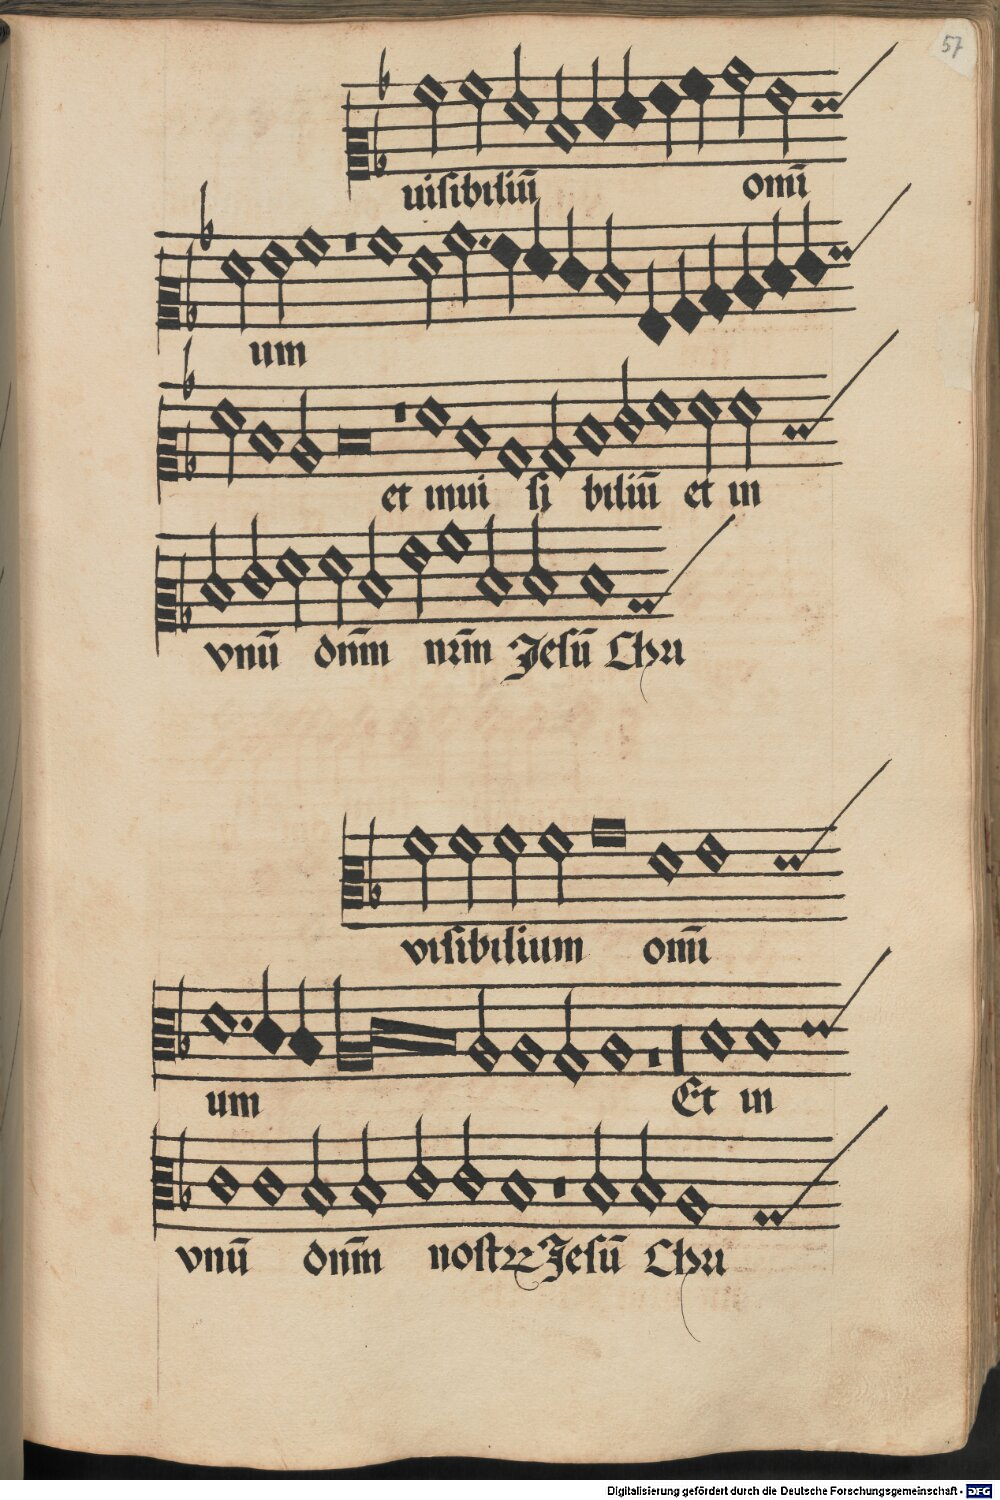 57
uisibiliū omī
um
et inui si biliū et in
vnū dnm̄ nrm̄ Jesū Chri
visibilium omī
um Et in
vnū dnm̄ nostrʒ Jesū Chri
Digitalisierung gefördert durch die Deutsche Forschungsgemeinschaft - DFG